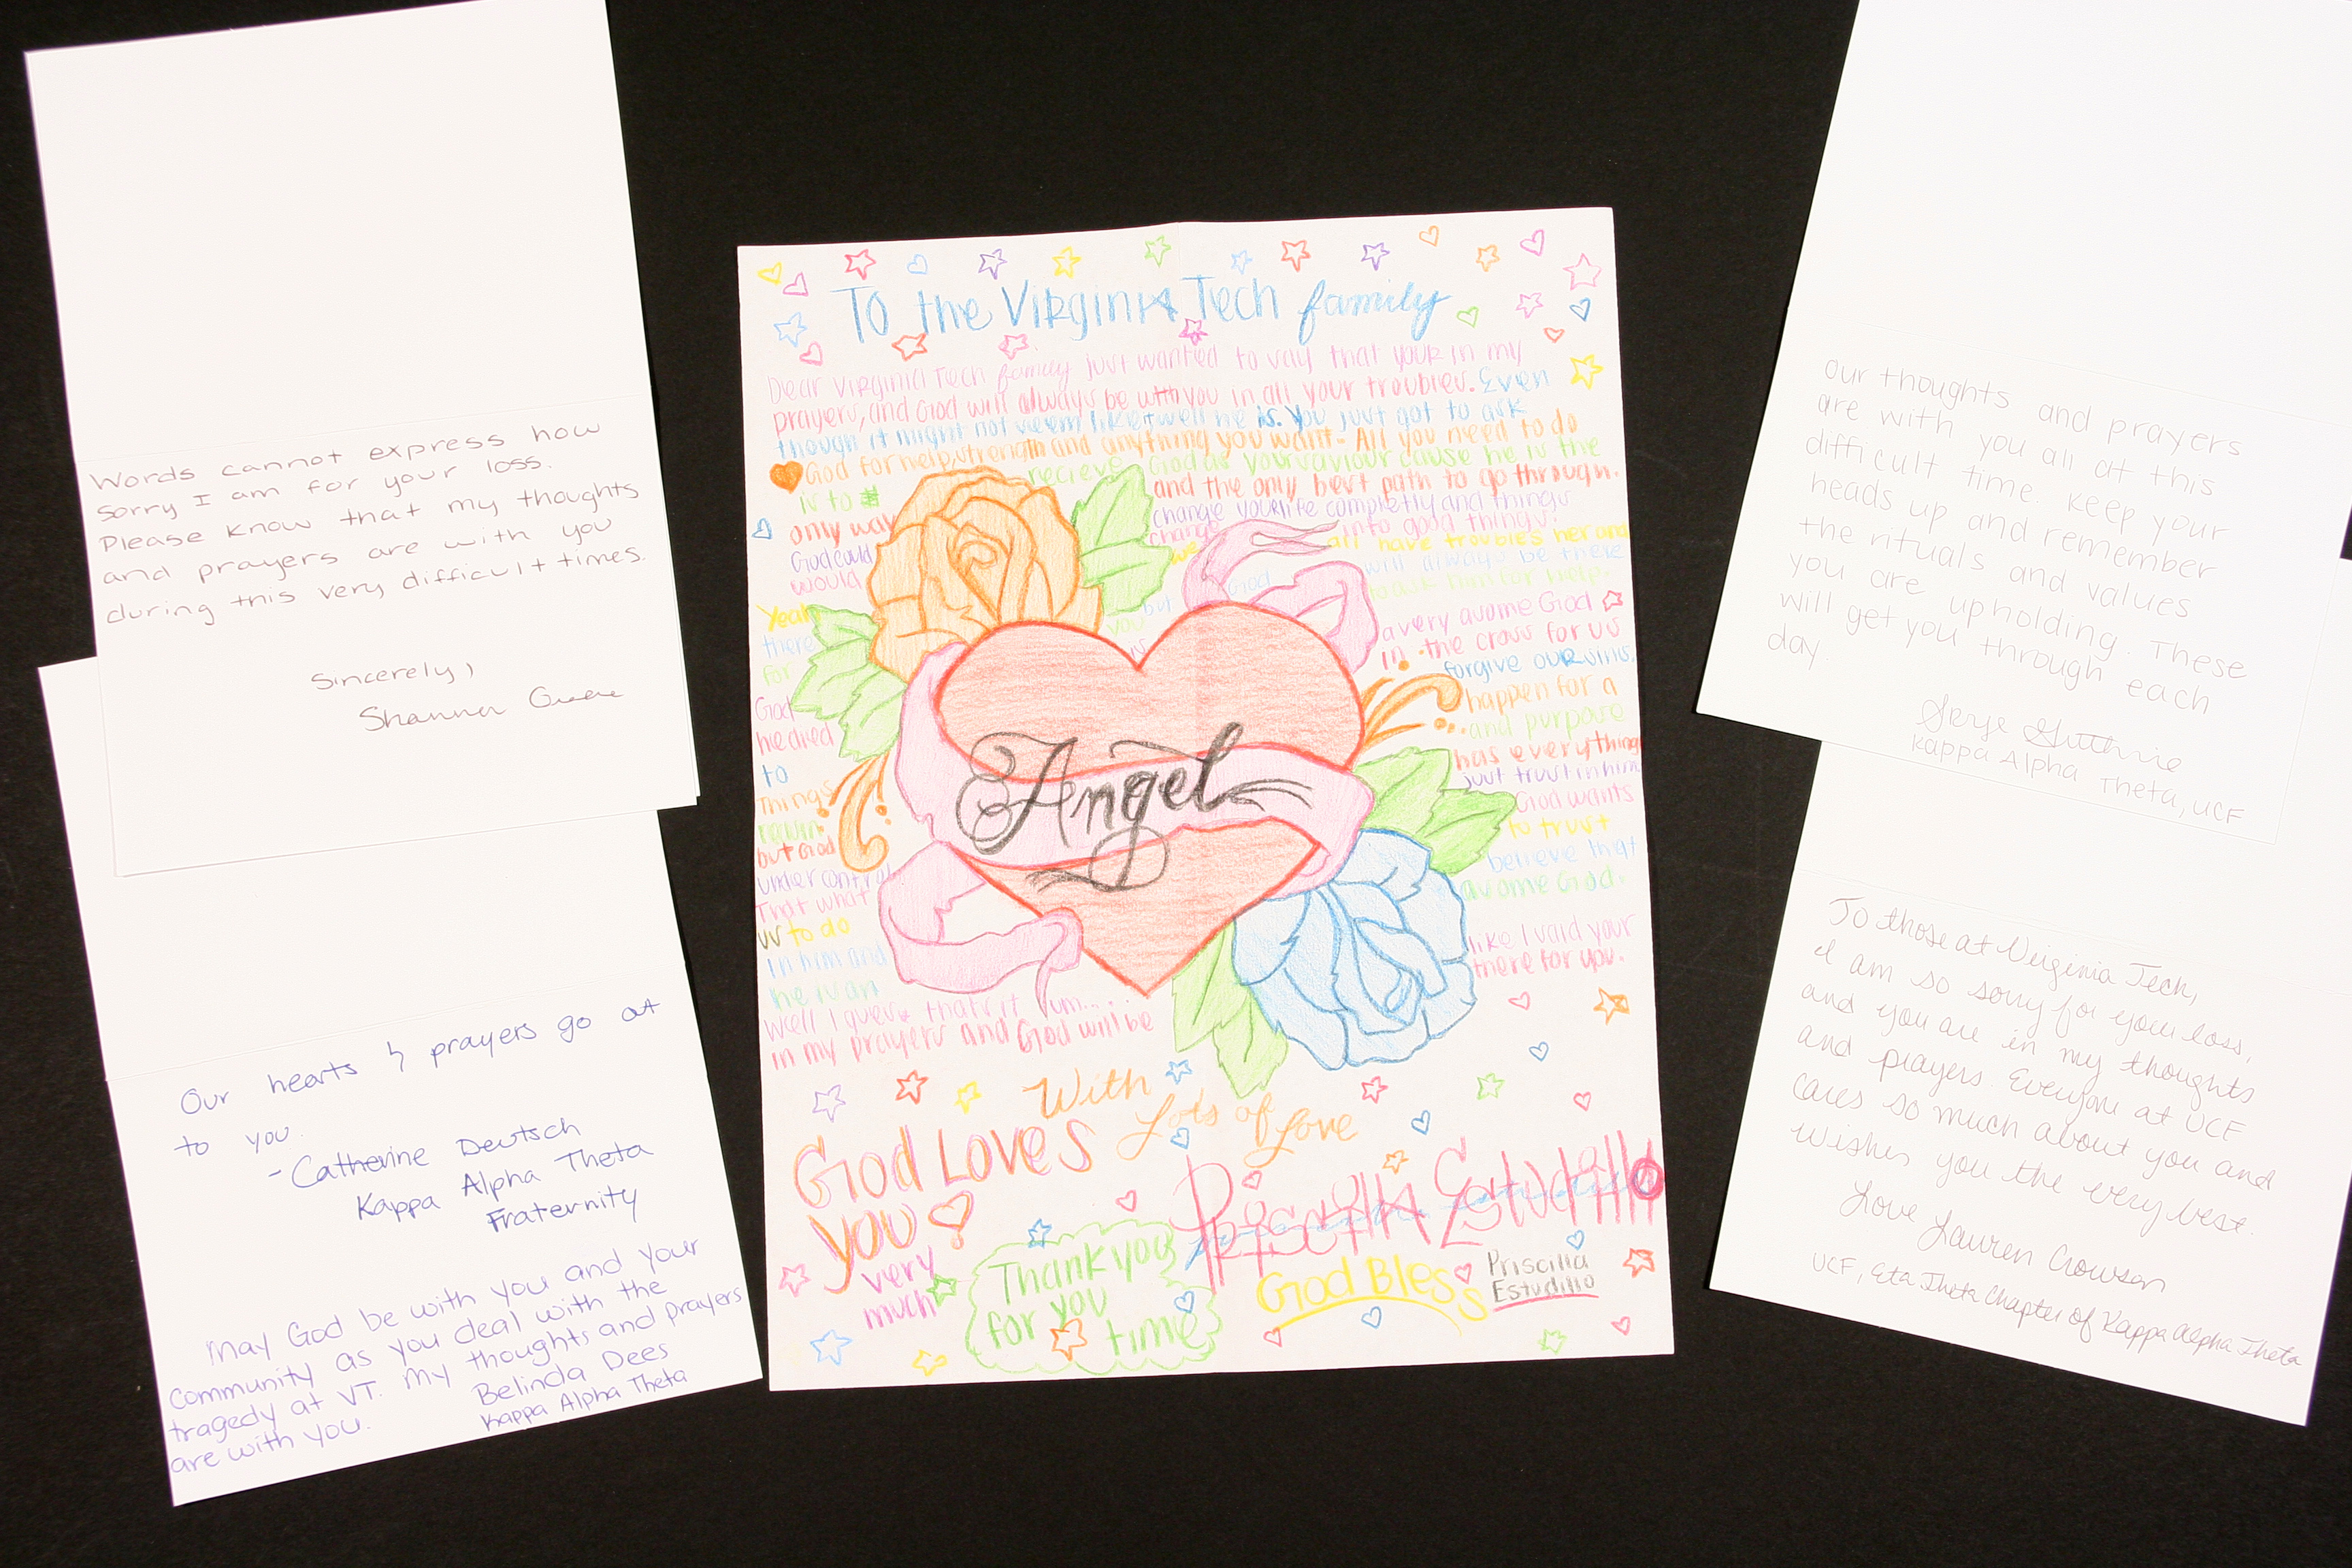 Words cannot express how
sorry I am for your loss.
Please know that my thoughts
and prayers are with you
during this very difficult times.
Sincerely,
Shanna
Our hearts & prayers go out
to you.
- Catherine Deutsch
Kappa Alpha Theta
Fraternity
May God be with you and your
community as you deal with the
tragedy at VT. My thoughts and prayers
are with you.
Belinda Dees
Kappa Alpha Theta
To the Virginia Tech family
Dear Virginia Tech family just wanted to say that your in my
prayers, and God will always be with you in all your troubles. Even
though it might not seem like it well he is. You just got to ask
God for help, strength and anything you want. All you need to do
is to recieve God as your saviour cause he is the
only way and the only best path to go through.
God could change your life completly and things
would change into good things.
Yeah we all have troubles her and
there but God will always be there
for you to ask him for help.
God is a very asome God
he died in the cross for us
to forgive our sins.
Things happen for a
reason and purpose
but God has everything
under control just trust in him
That what God wants
us to do to trust
in him and believe that
he is an asome God.
Well I guess that's it um.... like I said your
in my prayers and God will be there for you.
Angel
With
Lots of Love
God Loves
you
very
much
Priscilla Estudillo
Thank you
for you
time
God Bless
Priscilla
Estudillo
Our thoughts and prayers
are with you all at this
difficult time. Keep your
heads up and remember
the rituals and values
you are upholding. These
will get you through each
day.
Guthrie
Kappa Alpha Theta, UCF
To those at Virginia Tech,
I am so sorry for your loss,
and you are in my thoughts
and prayers. Everyone at UCF
cares so much about you and
wishes you the very best.
Love Lauren Crowson
UCF, Eta Theta Chapter of Kappa Alpha Theta